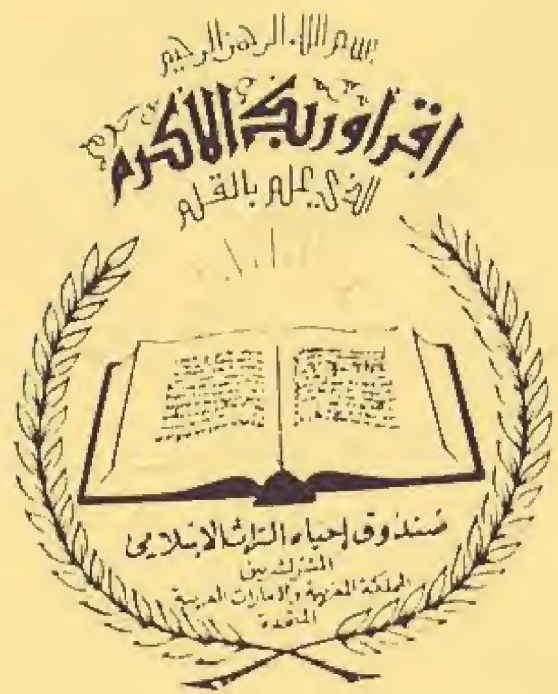 بسم الله الرحمن الرحيم
اقرأ وربك الأكرم
الذي علم بالقلم
صندوق إحياء التراث الإسلامي
المشترك بين
المملكة المغربية والإمارات العربية
المتحدة